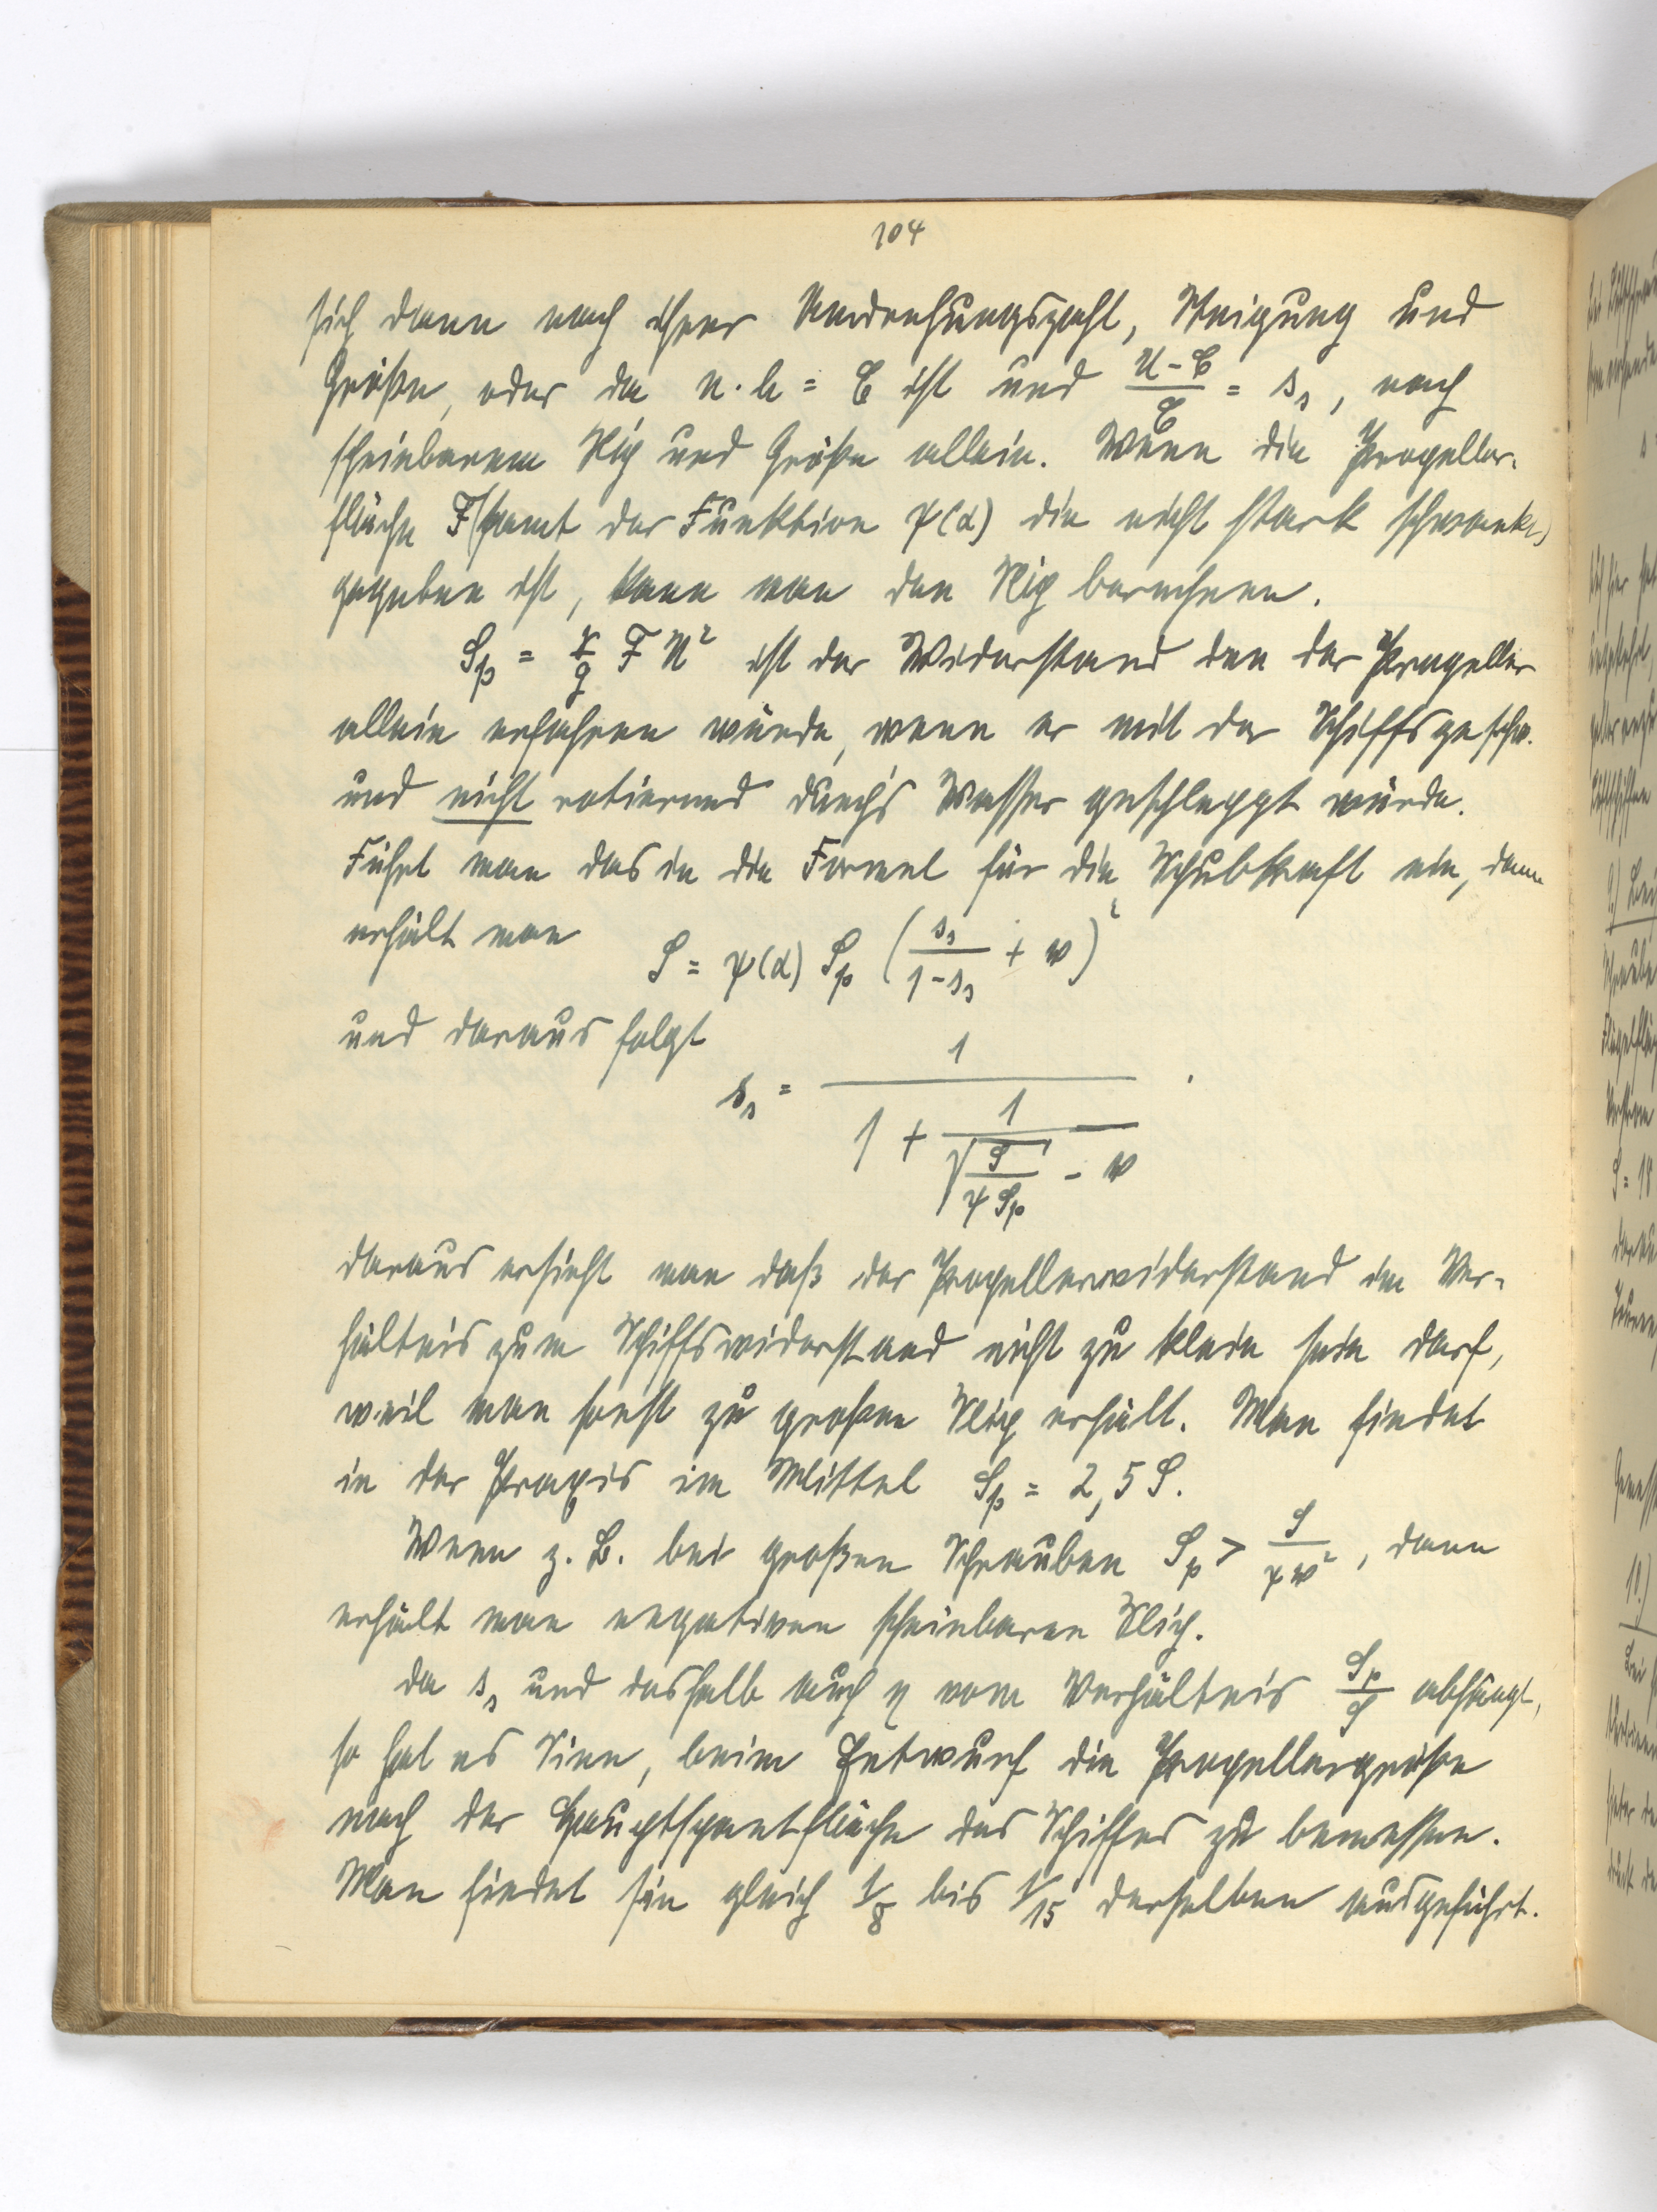 104
sich dann nach ihrer Umdrehungszahl, Steigung und
Größe, oder da n·h = C ist und (U - C)/C = s_s, nach
scheinbarem Slip und Größe allein. Wenn die Propeller-
fläche F (samt der Funktion ψ(α) die nicht stark schwankt)
gegeben ist, kann man den Slip berechnen.
S_p = γ/g F U² ist der Widerstand den der Propeller
allein erfahren würde, wenn er mit der Schiffsgeschw.
und nicht rotierend durch's Wasser geschleppt würde.
Führt man das in die Formel für die Schubkraft ein, dann
erhält man S = ψ(α) S_p (s_s/(1 - s_s) + w)²
und daraus folgt
s_s = 1/(1 + 1/(√(S/(ψ S_p)) - w)).
daraus ersieht man daß der Propellerwiderstand im Ver-
hältnis zum Schiffswiderstand nicht zu klein sein darf,
weil man sonst zu großen Slip erhält. Man findet
in der Praxis im Mittel S_p = 2,5 S.
Wenn z. B. bei großen Schrauben S_p > S/(ψ w²), dann
erhält man negativen scheinbaren Slip.
da s_s und deshalb auch η vom Verhältnis S_p/S abhängt,
so hat es Sinn, beim Entwurf die Propellergröße
nach der Hauptspantfläche des Schiffes zu bemessen.
Man findet sie gleich 1/8 bis 1/15 derselben ausgeführt.